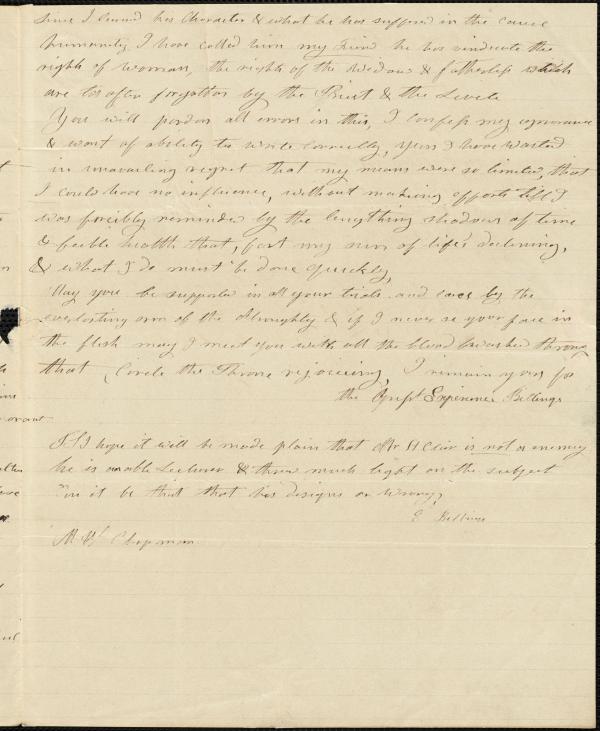 since I learnd his Character & what he has suffered in the cause
humanity I have called him my friend he has vindicate the
rights of woman, the rights of the widow & fatherless which
are too often forgotten by the Priest & the Levite
You will pardon all errors in this, I confess my ignorance
& want of ability to write correctly, years I have wasted
in unavailing regret that my means were so limited, that
I could have no influence, without making efforts till I
was forcibly reminded by the lengthing shadows of time
& feeble health that, fast my sun of life's declining,
& what I do must be done quickly,
May you be supported in all your trials and cares by the
everlasting arm of the Almoughty & if I never se your face in
the flesh may I meet you with all the blood bwashed throng
that Circle the Throne rejoicing, I remain yours for
the Oprest Experience Billings
PS I hope it will be made plain that Mr St Clair is not a enemy
he is an able Lecturer & throws much light on the subject
Can it be that that his designs are wrong,
E Billings
M W Chapman